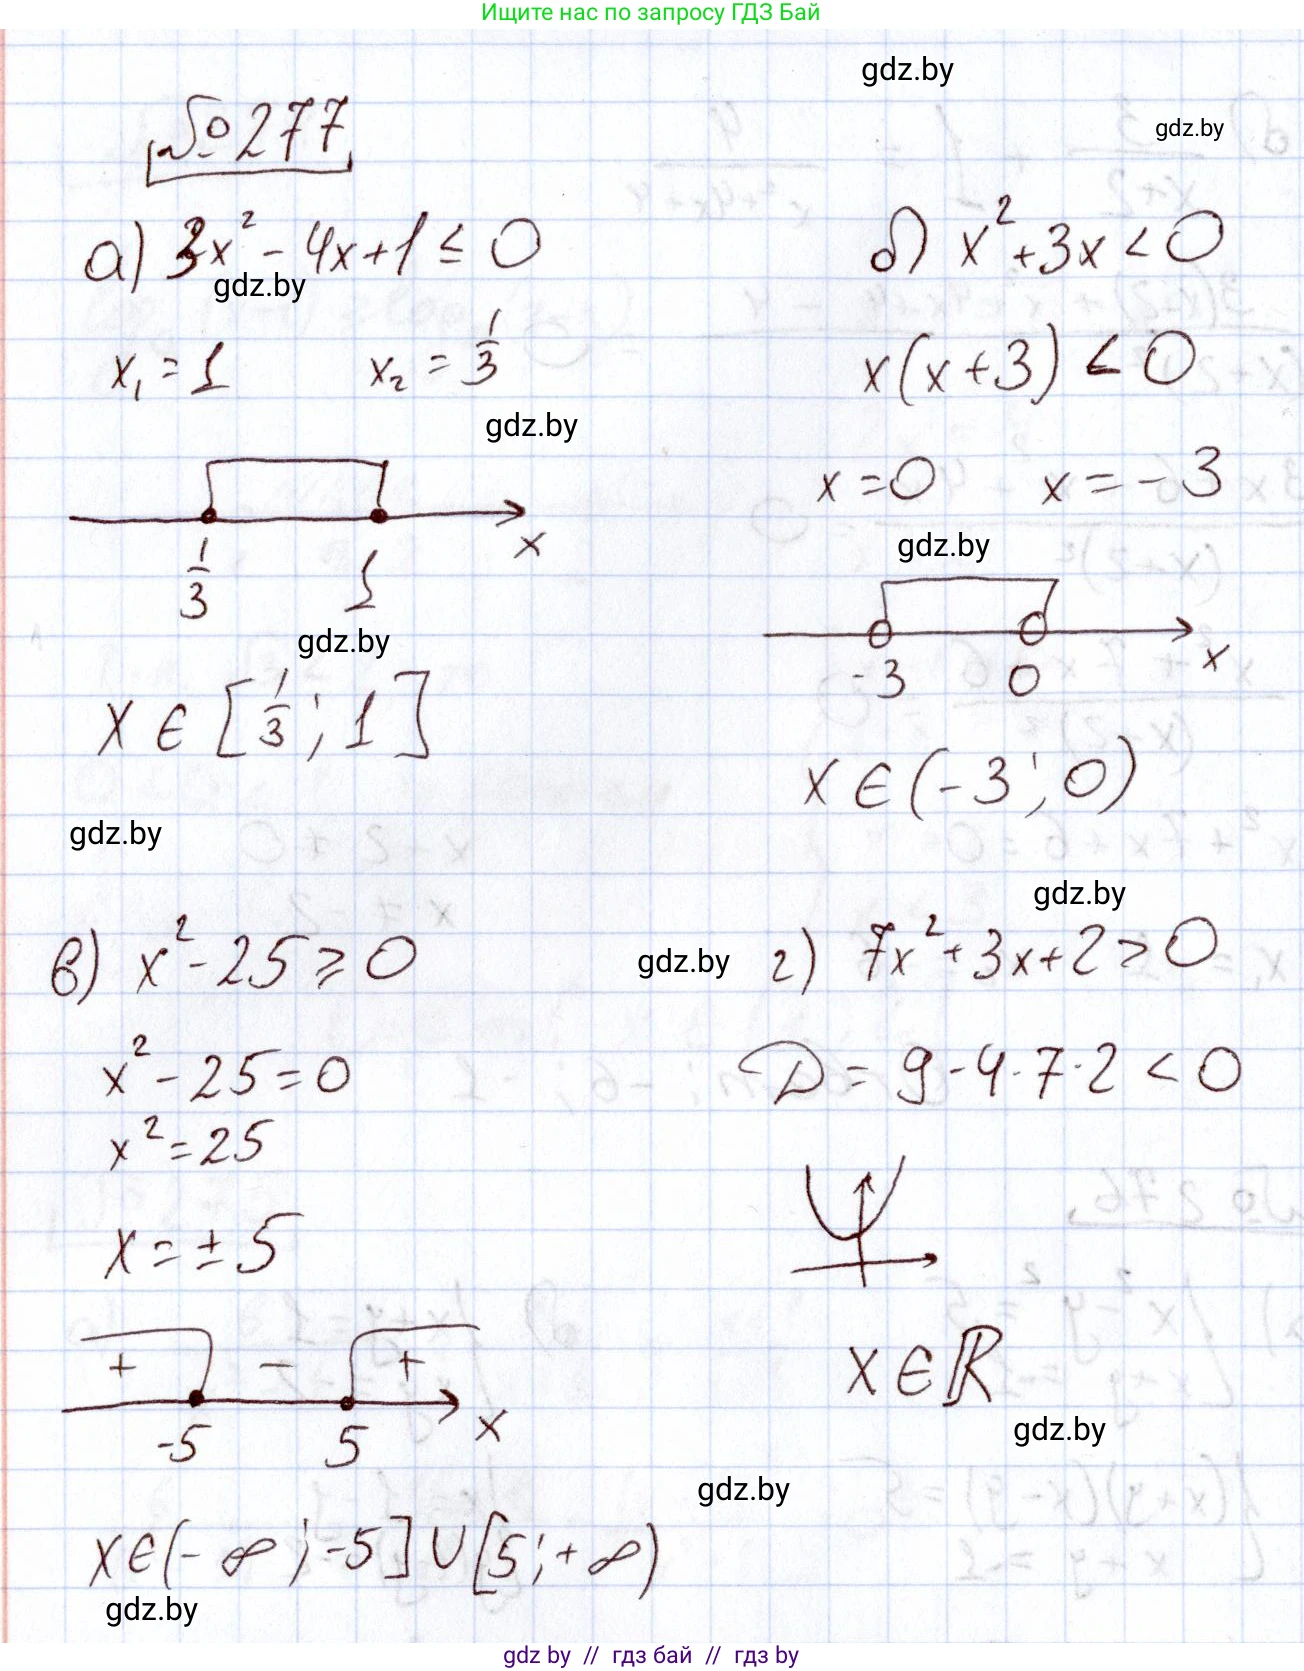 Ищите нас по запросу ГДЗ Бай
gdz.by
gdz.by
№ 277
а) 3x² - 4x + 1 ≤ 0
gdz.by
x₁ = 1 x₂ = 1/3
gdz.by
1/3 1 x
gdz.by
x ∈ [1/3; 1]
gdz.by
б) x² + 3x < 0
x(x + 3) < 0
x = 0 x = -3
gdz.by
-3 0 x
x ∈ (-3; 0)
gdz.by
в) x² - 25 ≥ 0
x² - 25 = 0
x² = 25
x = ± 5
+ - +
-5 5 x
x ∈ (-∞; -5] ∪ [5; +∞)
gdz.by
gdz.by
г) 7x² + 3x + 2 > 0
D = 9 - 4·7·2 < 0
x ∈ ℝ
gdz.by
gdz.by
gdz by // гдз бай // gdz by